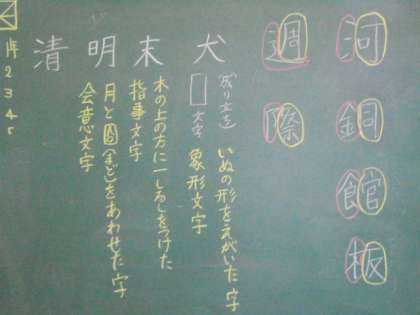 河
銅
館
板
週
際
犬
(成り立ち)
いぬの形をえがいた字
文字
象形文字
末
木の上の方に一しるしをつけた
指事文字
明
月と囧(まど)をあわせた字
会意文字
清
2
3
4
5